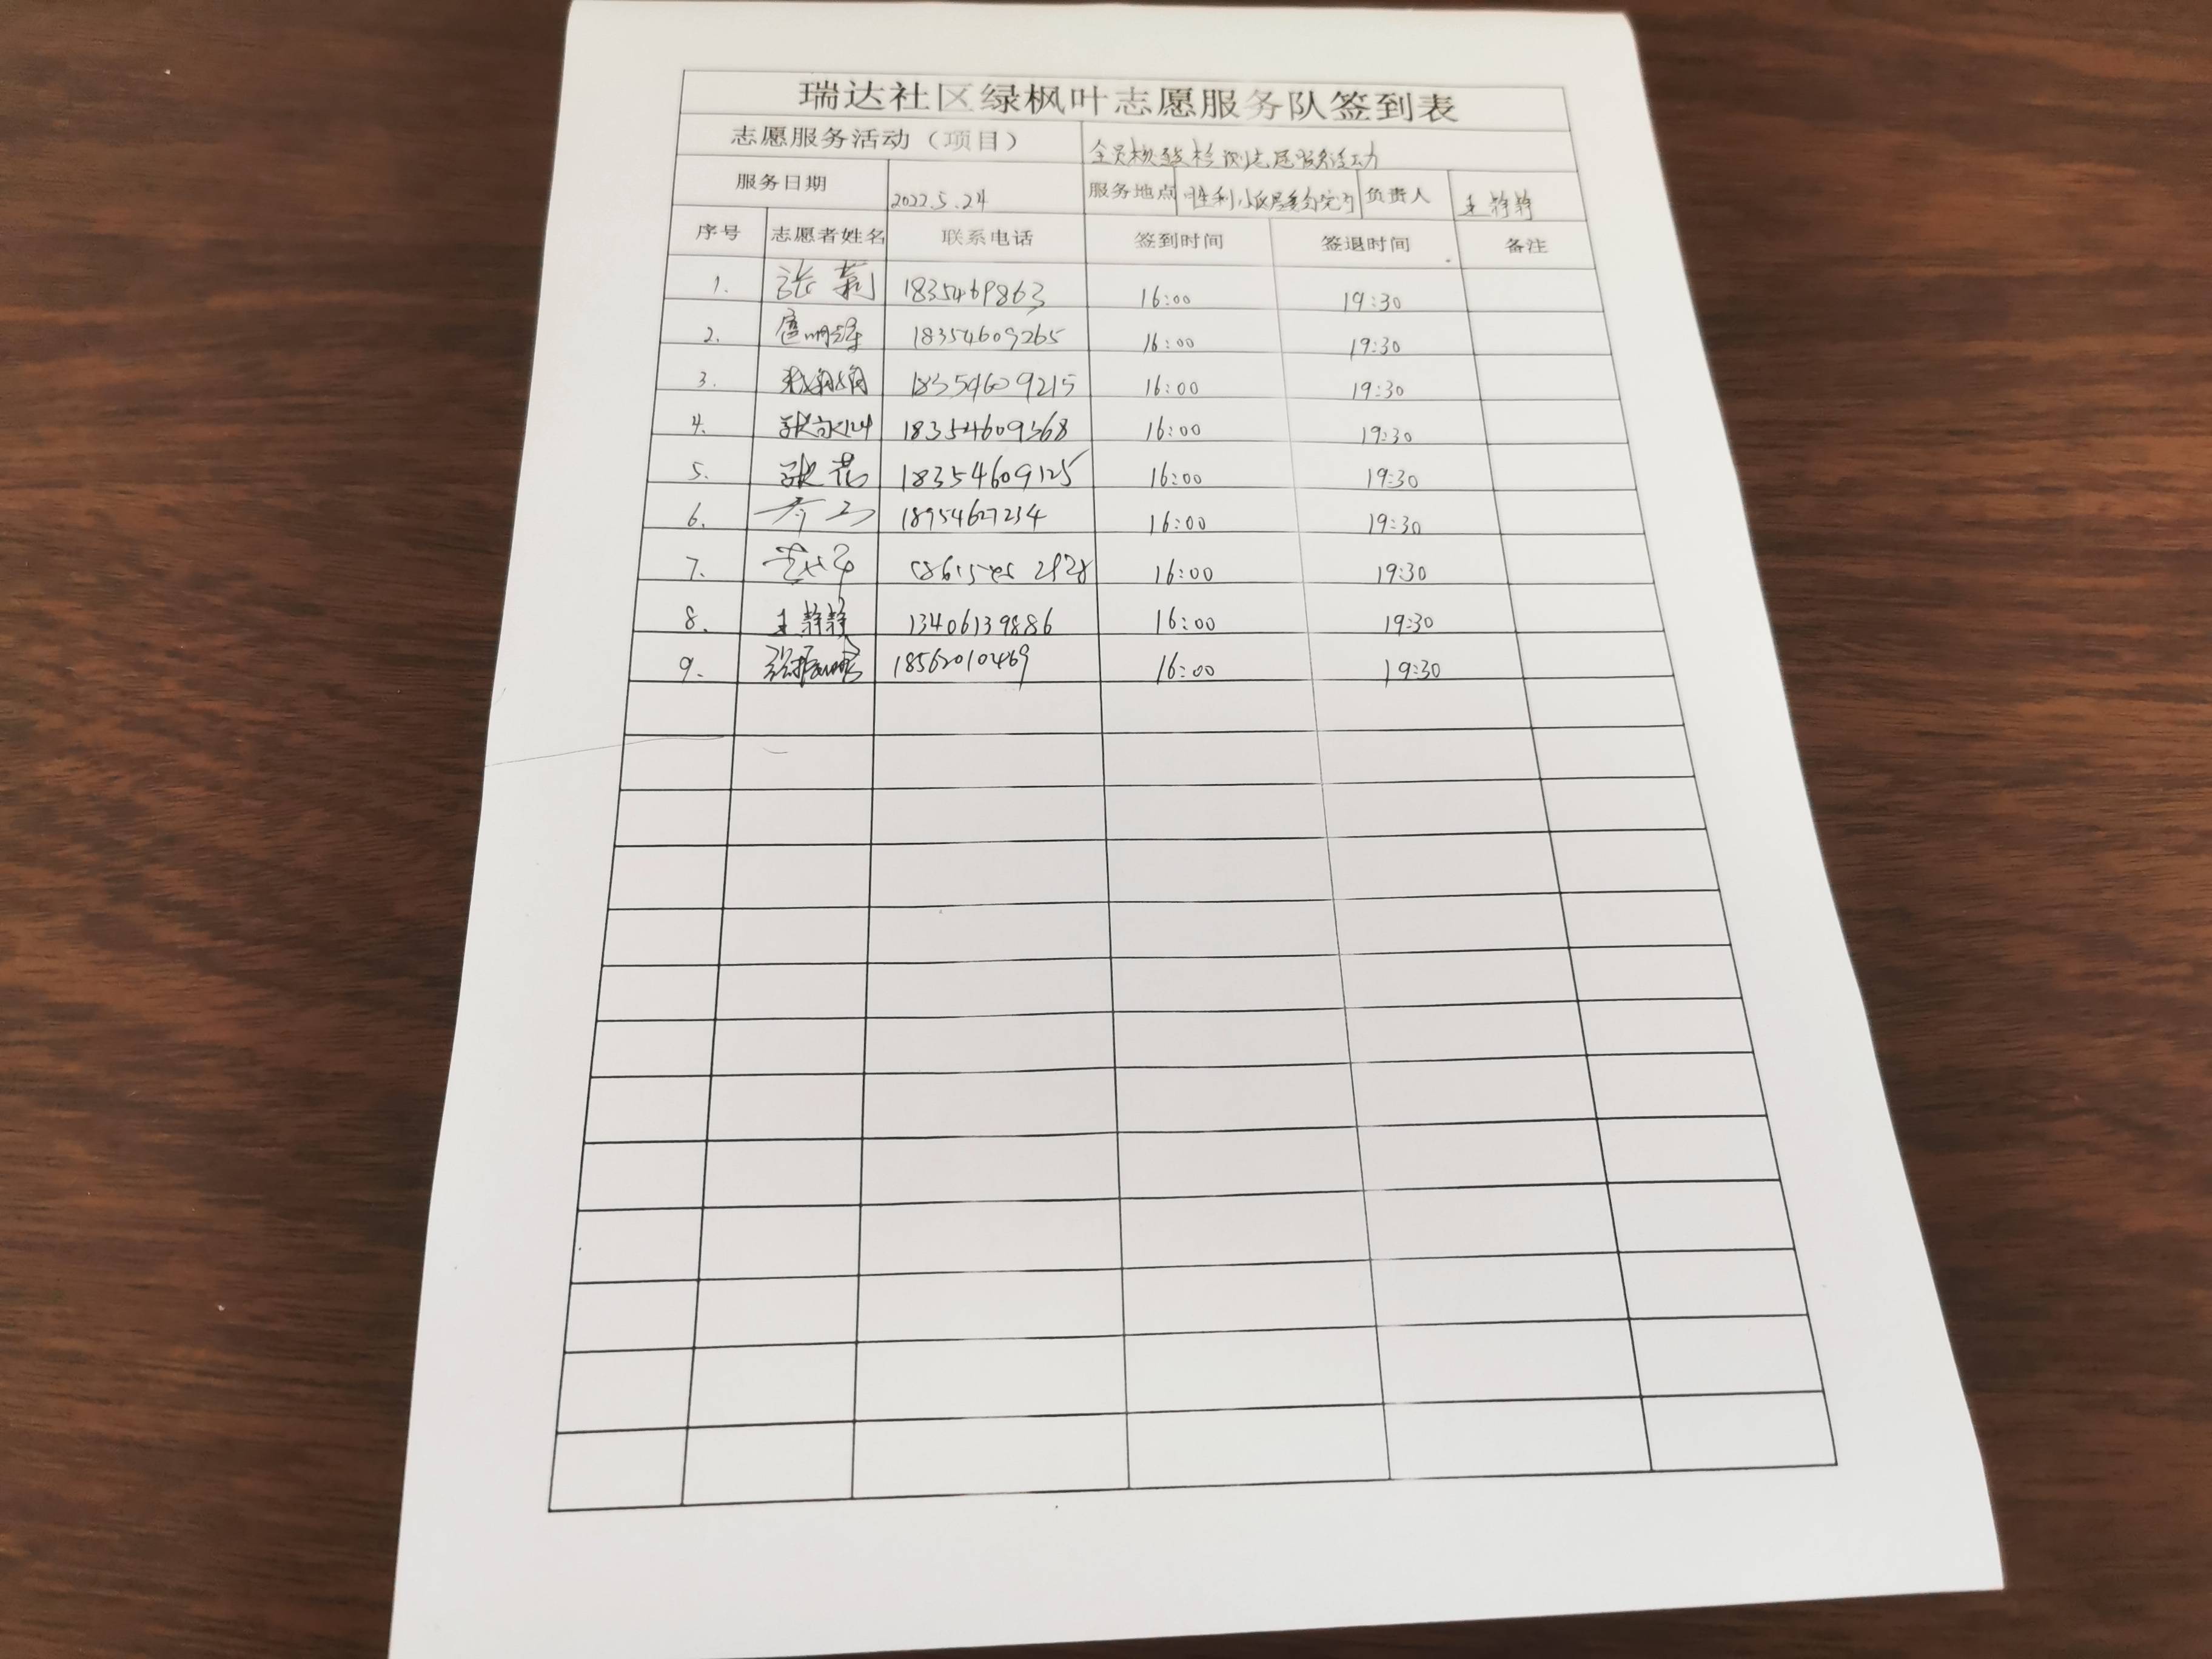 瑞达社区绿枫叶志愿服务队签到表
志愿服务活动（项目） 全员核酸检测志愿服务活动
服务日期 2022.5.24 服务地点 胜利小区 负责人 王静静
序号 志愿者姓名 联系电话 签到时间 签退时间 备注
1. 张莉 1835469863 16:00 19:30
2. 18354609265 16:00 19:30
3. 18354609215 16:00 19:30
4. 18354609368 16:00 19:30
5. 张芳 18354609125 16:00 19:30
6. 18954627234 16:00 19:30
7. 16:00 19:30
8. 王静静 13406139886 16:00 19:30
9. 18562010469 16:00 19:30